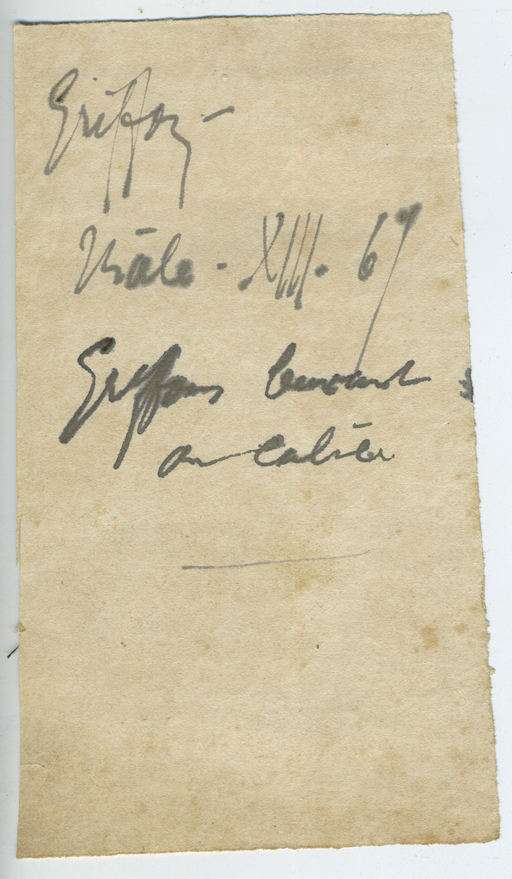 Griffon -
Mâle - XIII. 67
Griffons buvant
au calice